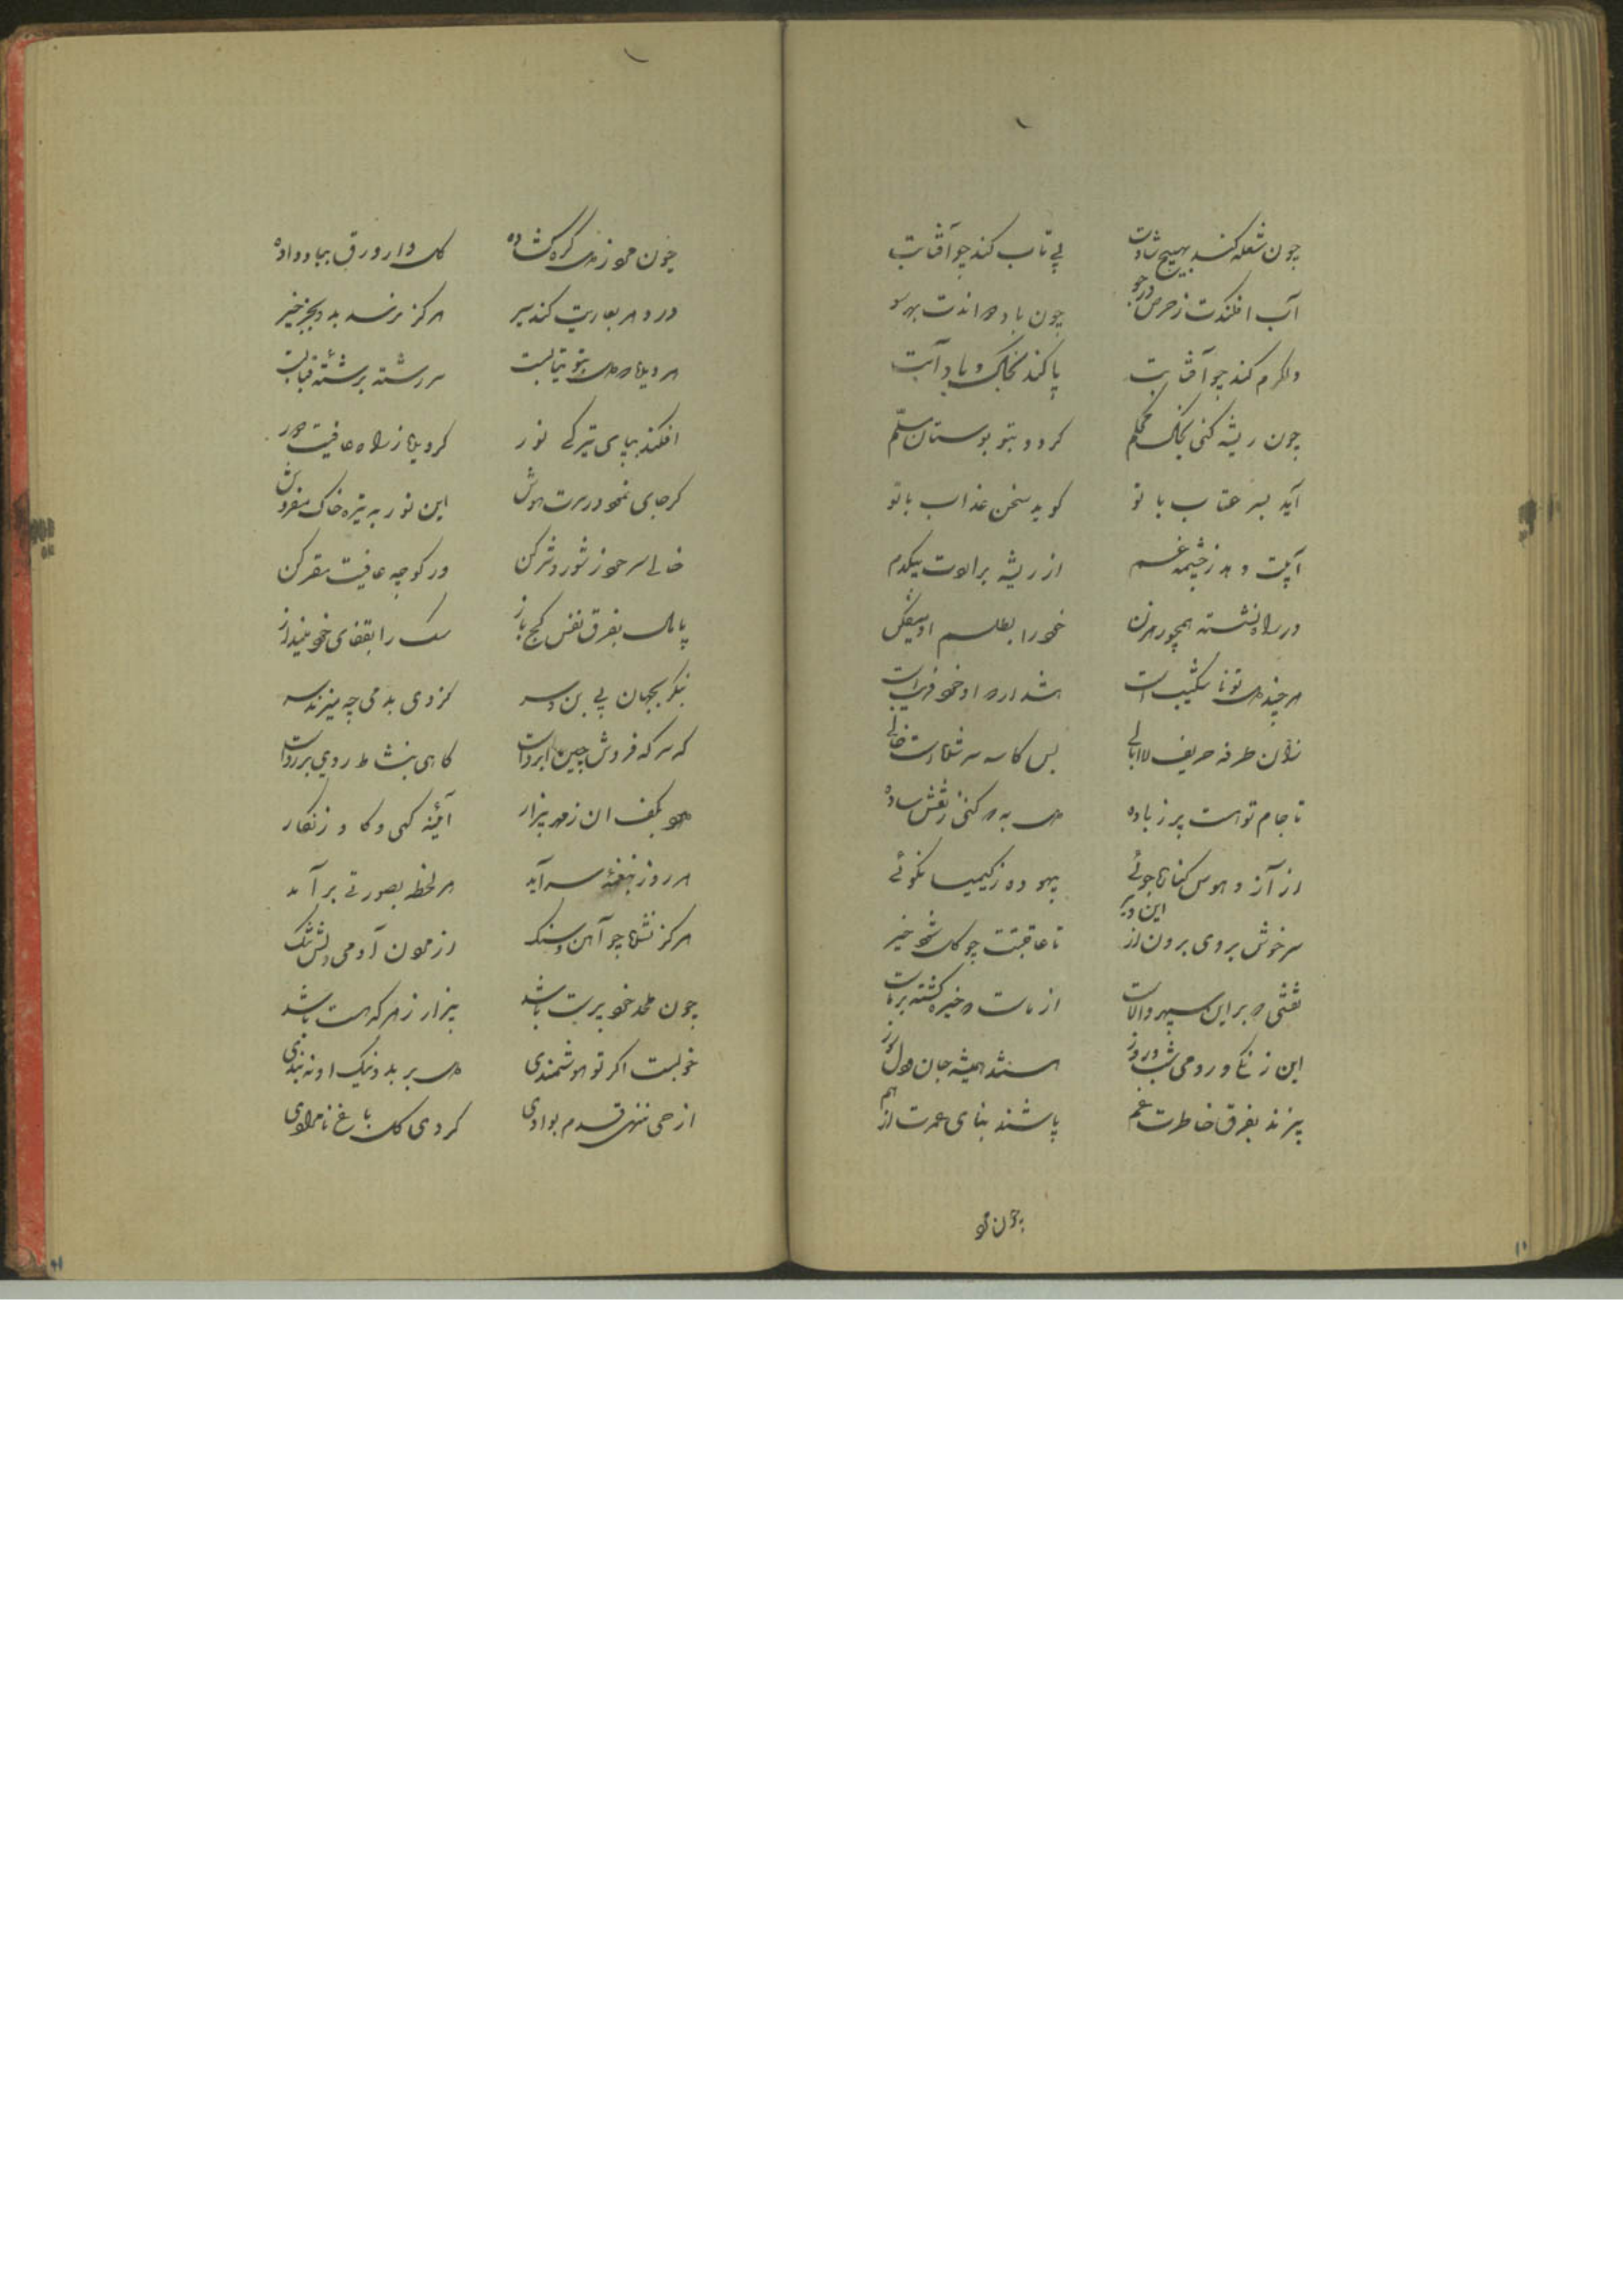 چون شعله کند بهیچ شادت بی تاب کند چو آفتابت
آب افکندت ز حرص در جو چون باد دواندت بهر سو
دلگرم کند چو آفتابت پا کند بخاک و باد آبت
چون ریشه کنی بخاک محکم کردد بتو بوستان مسلم
آید بسر عتاب با تو کوید سخن عذاب با تو
آبت دهد ز چشمه غم از ریشه برآردت بیکدم
در راه نشسته همچو رهزن خود را بطلسم او میفکن
هر چند دل تو ناشکیب است هشدار که او خود فریب است
زان طرفه حریف لاابالی بس کاسه سر شده است خالی
تا جام تو است پر ز باده دل به که کنی ز نقش ساده
از آز و هوس کناره جوئی بهوده ز کیمیا نکوئی
سرخوش بروی برون از این دیر تا عاقبتت چو کل شود خیر
نقشی که بر این سپهر والاست از ماست که خیره کشته بر ماست
این زنگی و رومی شب و روز هستند همیشه جان و دل سوز
بیزند بفرق خاطرت غم پاشند بنای عمرت از هم
چون تو
چون غنچه ز دل کره کشاده کل وار ورق بباد داده
در دهر بعاریت کند سیر هرکز نرسد بدو بجز خیر
هر دیده که دل بتو بتابست سر رشته برشته قبابست
افکند بپای تیرکی نور کردیده ز راه عافیت دور
کر جای نمود در سرت هوش این نور به تیره خاک مفروش
خالی سر خود ز شور و شر کن در کوچه عافیت مقر کن
پا مال بفرق نفس کج باز سک را بقفای خود مینداز
بنکر بجهان بی بن و سر کز وی بدمی چه میزند سر
که سرکه فروش چین ابروست کاهی بنشاط روی بر روست
بکف آن ز مهر بیزار آئینه کهی و کاه زنکار
هر روز بنغمه سر آید هر لحظه بصورتی برآید
هرکز نشده چو آهن و سنک از خون آدمی دلش تنک
چون ملحد خود پرست باشد بیزار ز هر که هست باشد
خوبست اکر تو هوشمندی دل بر بد و نیک او نبندی
از حق ننهی قدم بوادی کردی کل باغ نامرادی